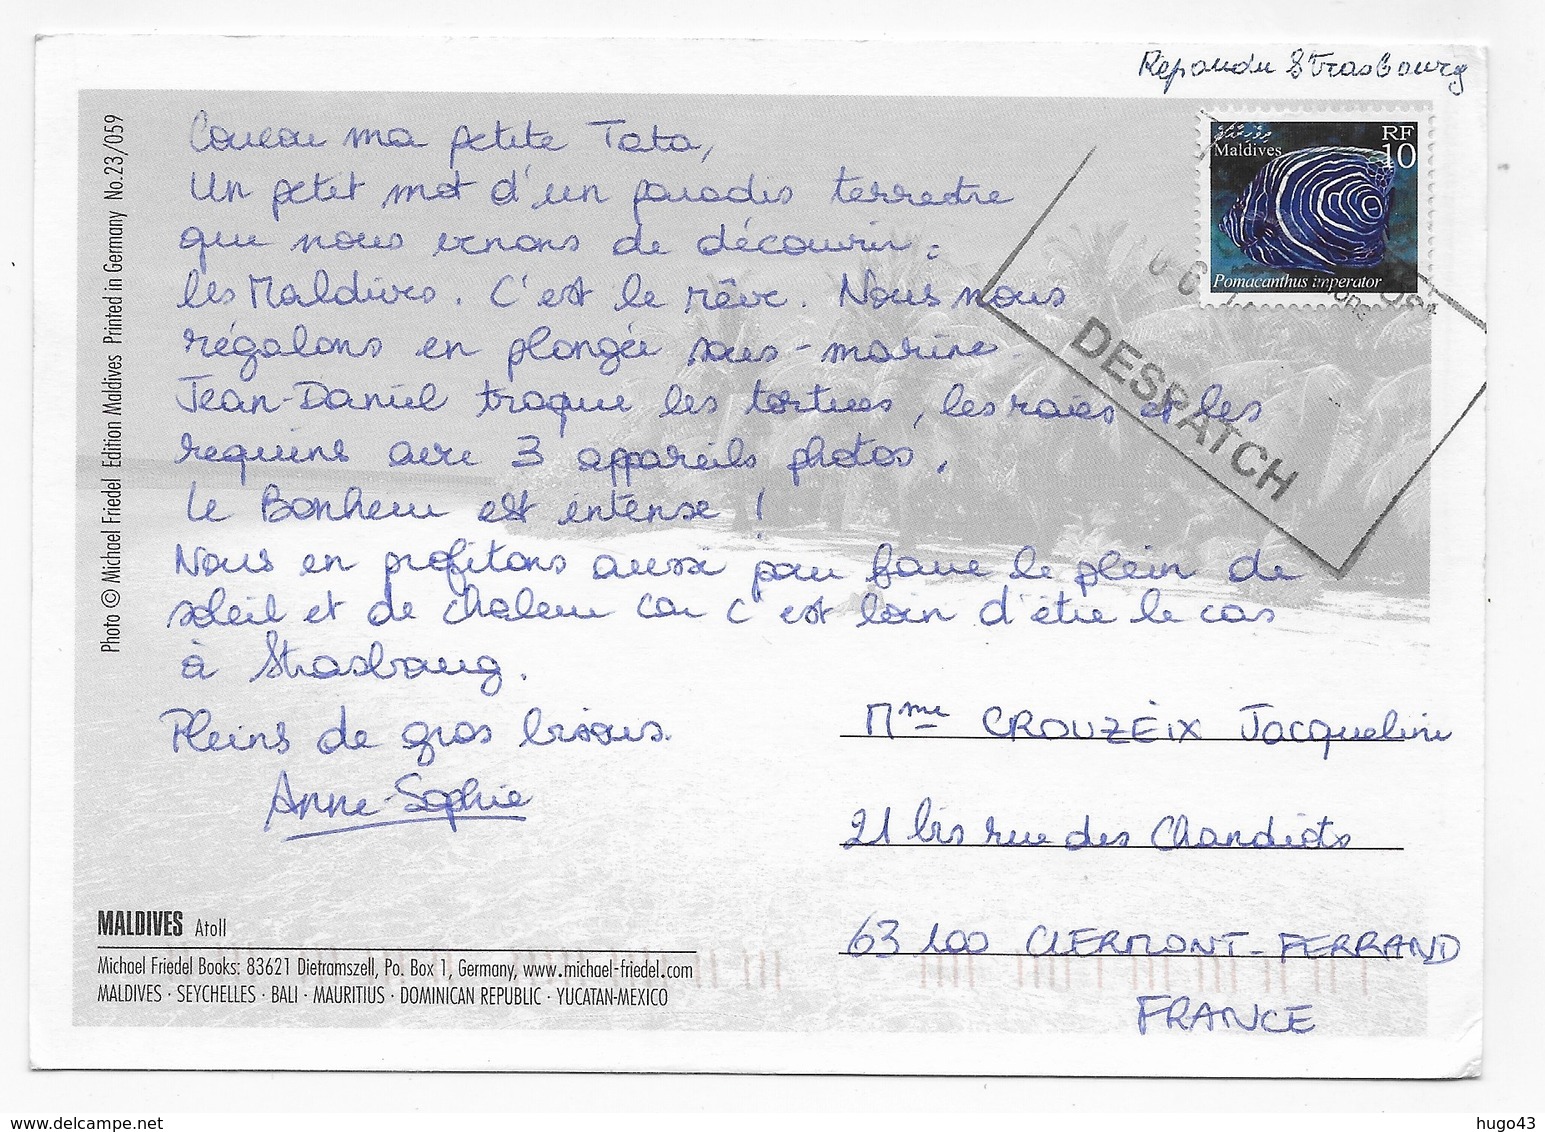 Répondu Strasbourg
Coucou ma petite Tata,
Un petit mot d'un paradis terrestre
que nous venons de découvrir :
les Maldives. C'est le rêve. Nous nous
régalons en plongée sous-marine.
Jean-Daniel traque les tortues, les raies et les
requins avec 3 appareils photos.
Le Bonheur est intense !
Nous en profitons aussi pour faire le plein de
soleil et de chaleur car c'est loin d'être le cas
à Strasbourg.
Pleins de gros bisous.
Anne-Sophie
Mme CROUZEIX Jacqueline
21 bis rue des Chandiots
63 100 CLERMONT-FERRAND
FRANCE
Maldives
RF
10
Pomacanthus imperator
DESPATCH
Photo © Michael Friedel Edition Maldives Printed in Germany No.23/059
MALDIVES Atoll
Michael Friedel Books: 83621 Dietramszell, Po. Box 1, Germany, www.michael-friedel.com
MALDIVES · SEYCHELLES · BALI · MAURITIUS · DOMINICAN REPUBLIC · YUCATAN-MEXICO
www.delcampe.net
hugo43